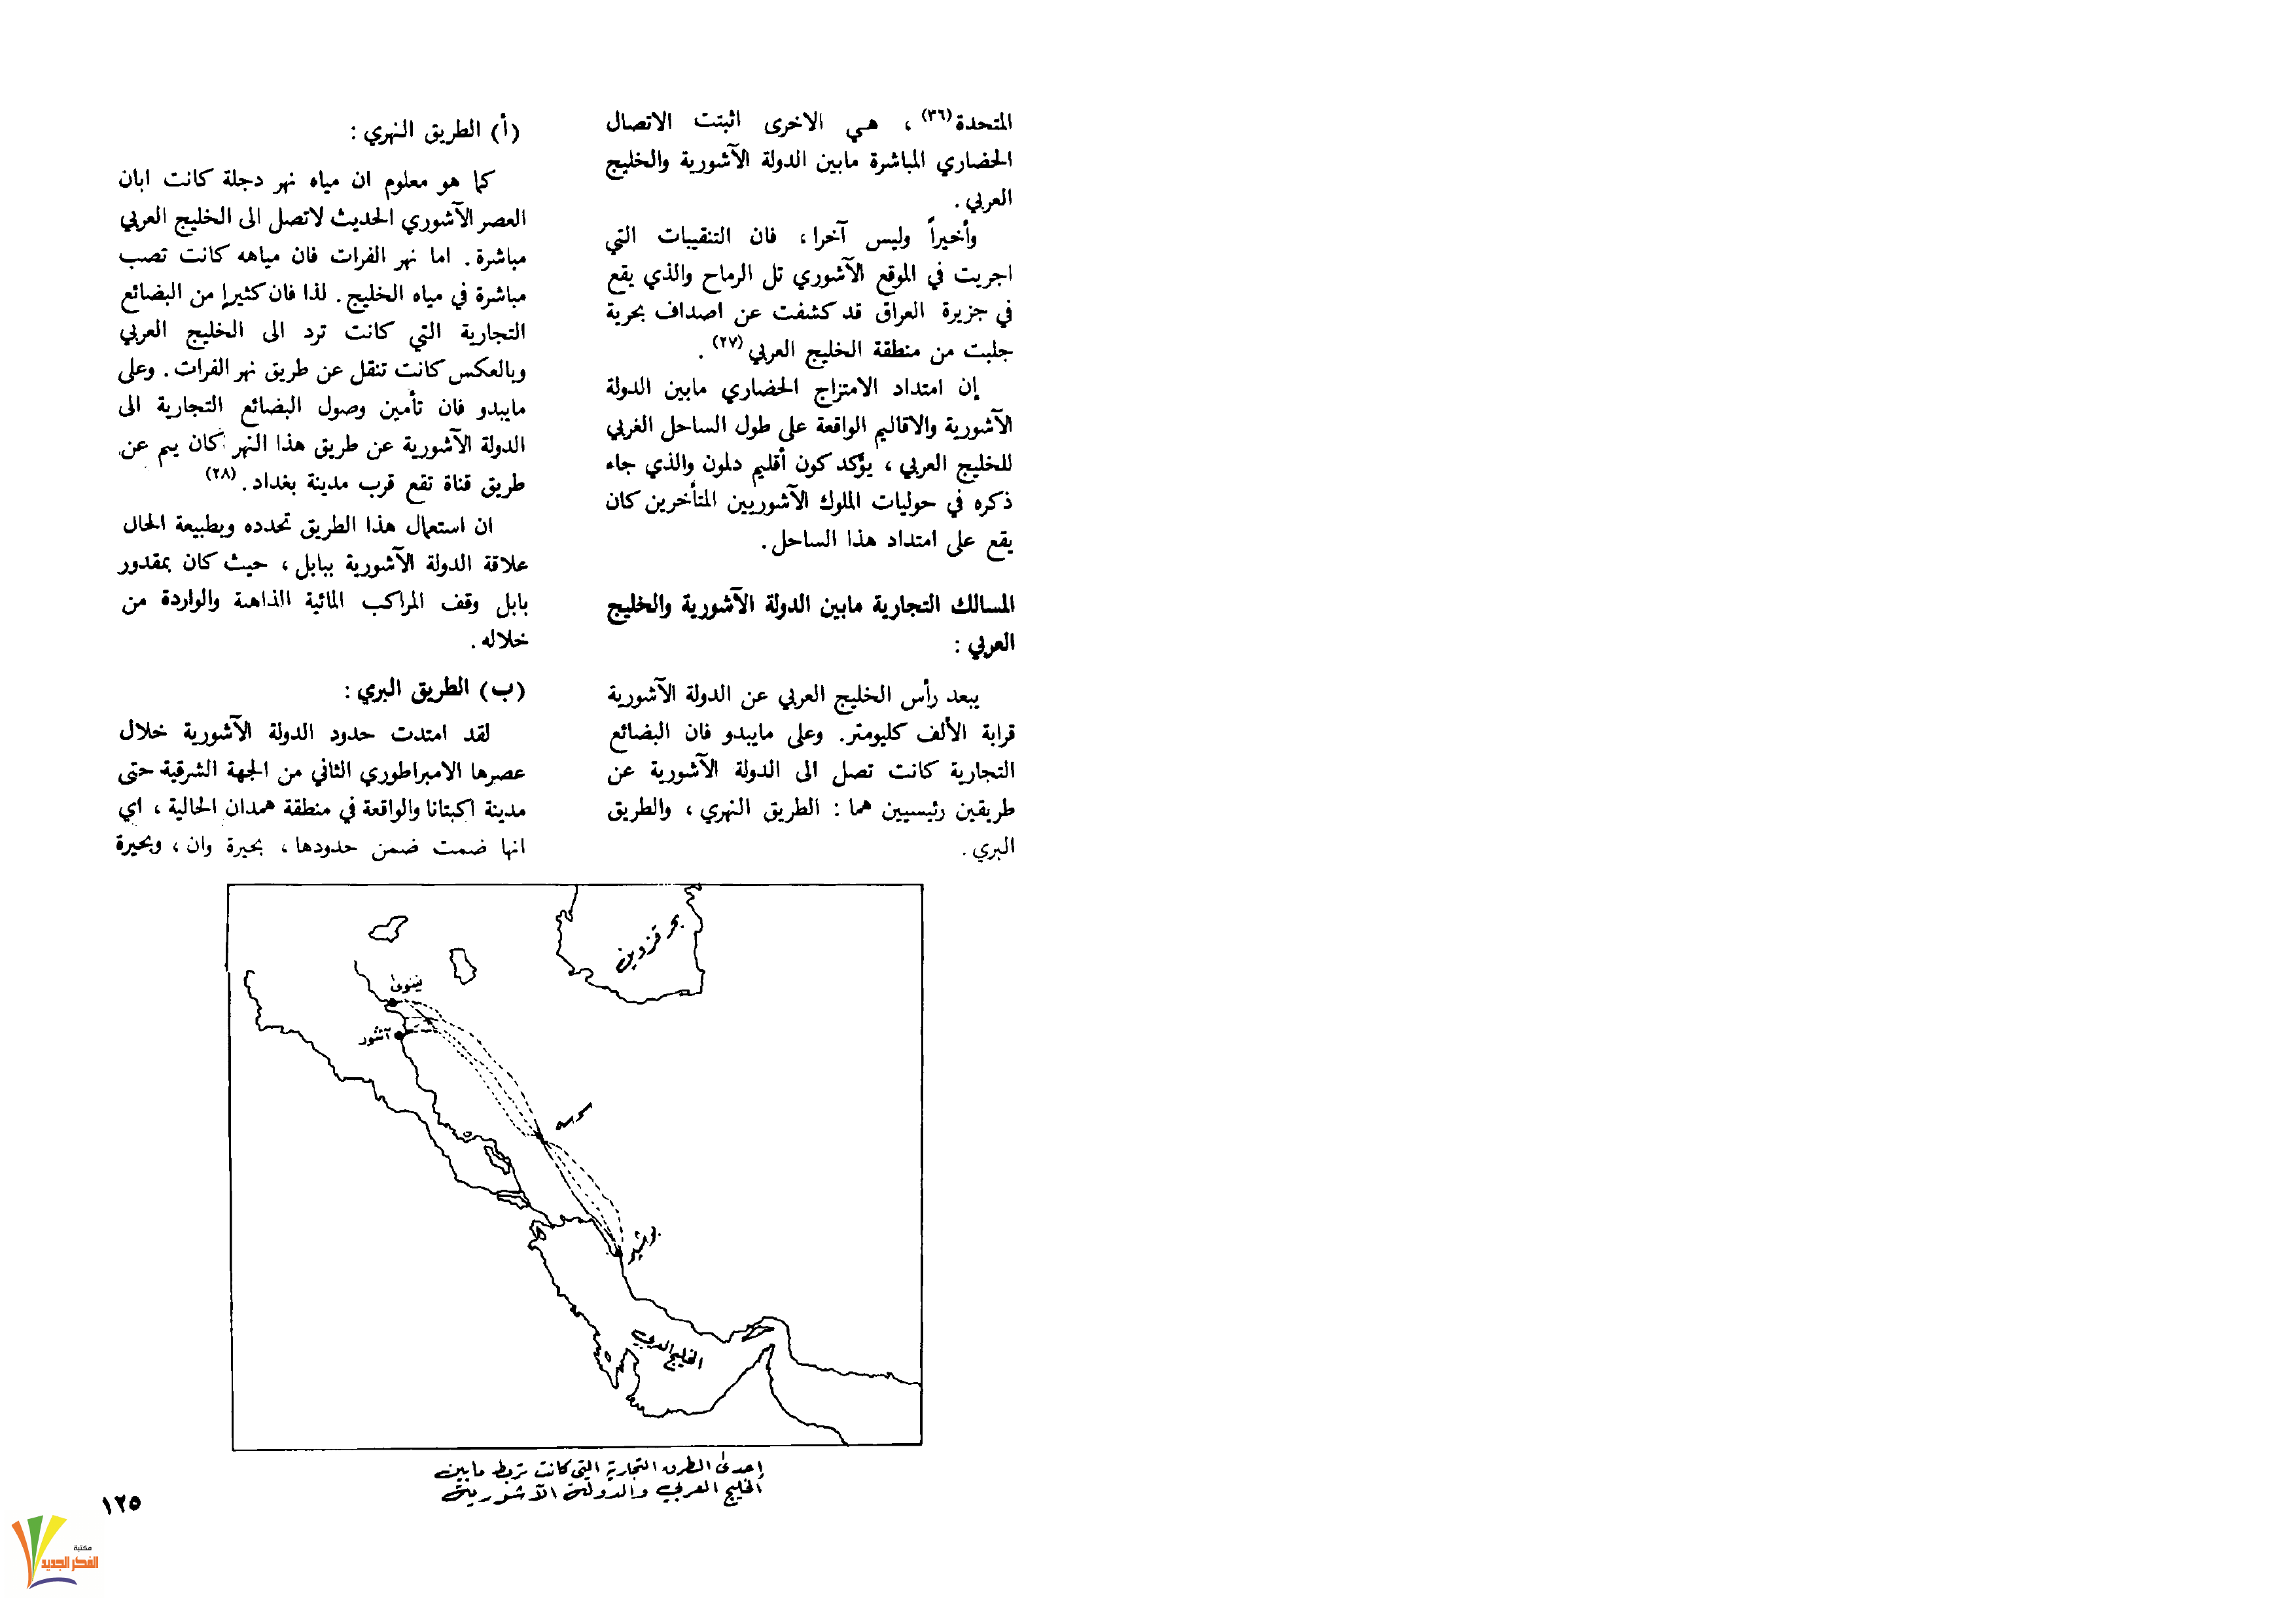 المتحدة(٣٦) ، هي الاخرى اثبتت الاتصال
الحضاري المباشرة مابين الدولة الآشورية والخليج
العربي .
وأخيراً وليس آخرا ، فان التنقيبات التي
اجريت في الموقع الآشوري تل الرماح والذي يقع
في جزيرة العراق قد كشفت عن اصداف بحرية
جلبت من منطقة الخليج العربي (٢٧) .
إن امتداد الامتزاج الحضاري مابين الدولة
الآشورية والاقاليم الواقعة على طول الساحل الغربي
للخليج العربي ، يؤكد كون أقليم دلمون والذي جاء
ذكره في حوليات الملوك الآشوريين المتأخرين كان
يقع على امتداد هذا الساحل .
المسالك التجارية مابين الدولة الآشورية والخليج
العربي :
يبعد رأس الخليج العربي عن الدولة الآشورية
قرابة الألف كليومتر . وعلى مايبدو فان البضائع
التجارية كانت تصل الى الدولة الآشورية عن
طريقين رئيسيين هما : الطريق النهري ، والطريق
البري .
(أ) الطريق النهري :
كما هو معلوم ان مياه نهر دجلة كانت ابان
العصر الآشوري الحديث لاتصل الى الخليج العربي
مباشرة . اما نهر الفرات فان مياهه كانت تصب
مباشرة في مياه الخليج . لذا فان كثيرا من البضائع
التجارية التي كانت ترد الى الخليج العربي
وبالعكس كانت تنقل عن طريق نهر الفرات . وعلى
مايبدو فان تأمين وصول البضائع التجارية الى
الدولة الآشورية عن طريق هذا النهر كان يتم عن
طريق قناة تقع قرب مدينة بغداد . (٢٨)
ان استعمال هذا الطريق تحدده وبطبيعة الحال
علاقة الدولة الآشورية ببابل ، حيث كان بمقدور
بابل وقف المراكب المائية الذاهبة والواردة من
خلاله .
(ب) الطريق البري :
لقد امتدت حدود الدولة الآشورية خلال
عصرها الامبراطوري الثاني من الجهة الشرقية حتى
مدينة اكبتانا والواقعة في منطقة همدان الحالية ، اي
انها ضمت ضمن حدودها ، بحيرة وان ، وبحيرة
بحر قزوين
نينوى
آشور
بوشهر
الخليج العربي
إحدى الطرق التجارية التي كانت تربط مابين
الخليج العربي والدولة الآشورية
١٢٥
مكتبة
الفكر الجديد